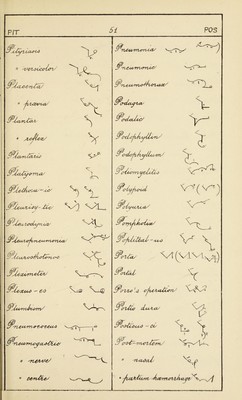 PIT
51
POS
Pityriasis
" versicolor
Placenta
" prævia
Plantar
" reflex
Plantaris
Platysma
Plethora-ic
Pleurisy-tic
Pleurodynia
Pleuropneumonia
Pleurothotonos
Plexometer
Plexus-es
Plumbism
Pneumococcus
Pneumogastric
" nerve
" centre
Pneumonia
Pneumonic
Pneumothorax
Podagra
Podalic
Podophyllin
Podophyllum
Poliomyelitis
Polypoid
Polyuria
Pompholix
Popliteal-us
Porta
Portal
Porro's operation
Portio dura
Posticus-ci
Post-mortem
" nasal
" partum hæmorrhage